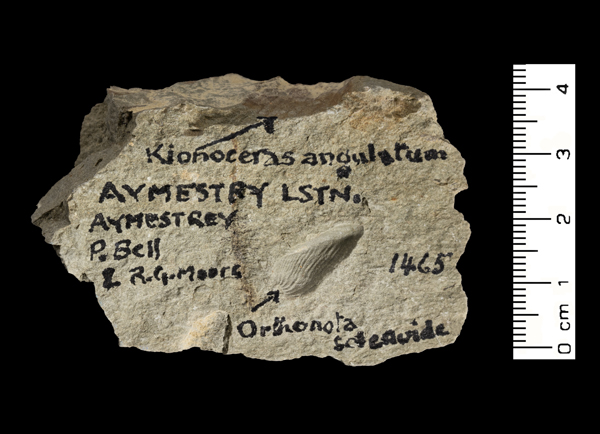 Kionoceras angulatum
AYMESTRY LSTN.
AYMESTREY
P. Bell
& R.G. Moore
1465
Orthonota
0 cm 1 2 3 4